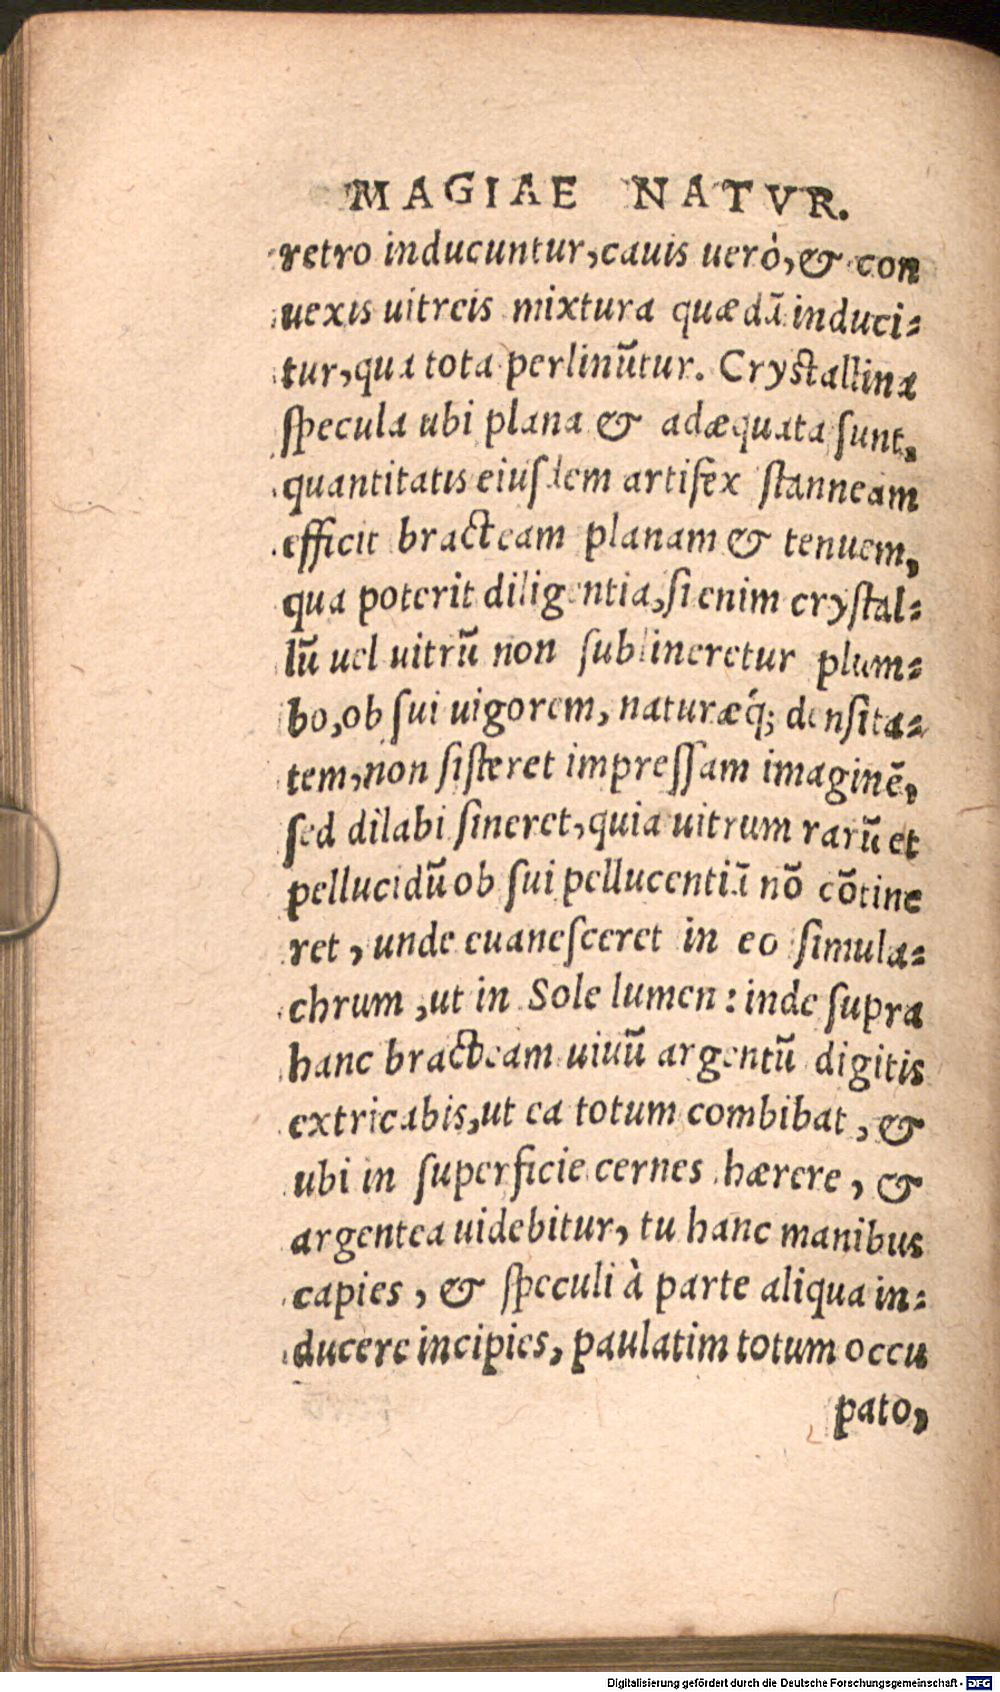 MAGIAE NATVR.
retro inducuntur, cauis uerò, & con
uexis uitreis mixtura quædā induci-
tur, qua tota perlinūtur. Crystallina
specula ubi plana & adæquata sunt,
quantitatis eiusdem artifex stanneam
efficit bracteam planam & tenuem,
qua poterit diligentia, si enim crystal-
lū uel uitrū non sublineretur plum-
bo, ob sui uigorem, naturæq́; densita-
tem, non sisteret impressam imaginē,
sed dilabi sineret, quia uitrum rarū et
pellucidū ob sui pellucentiā nō cōtine
ret, unde euanesceret in eo simula-
chrum, ut in Sole lumen: inde supra
hanc bracteam uiuū argentū digitis
extricabis, ut ea totum combibat, &
ubi in superficie cernes hærere, &
argentea uidebitur, tu hanc manibus
capies, & speculi à parte aliqua in-
ducere incipies, paulatim totum occu
pato,
Digitalisierung gefördert durch die Deutsche Forschungsgemeinschaft - DFG